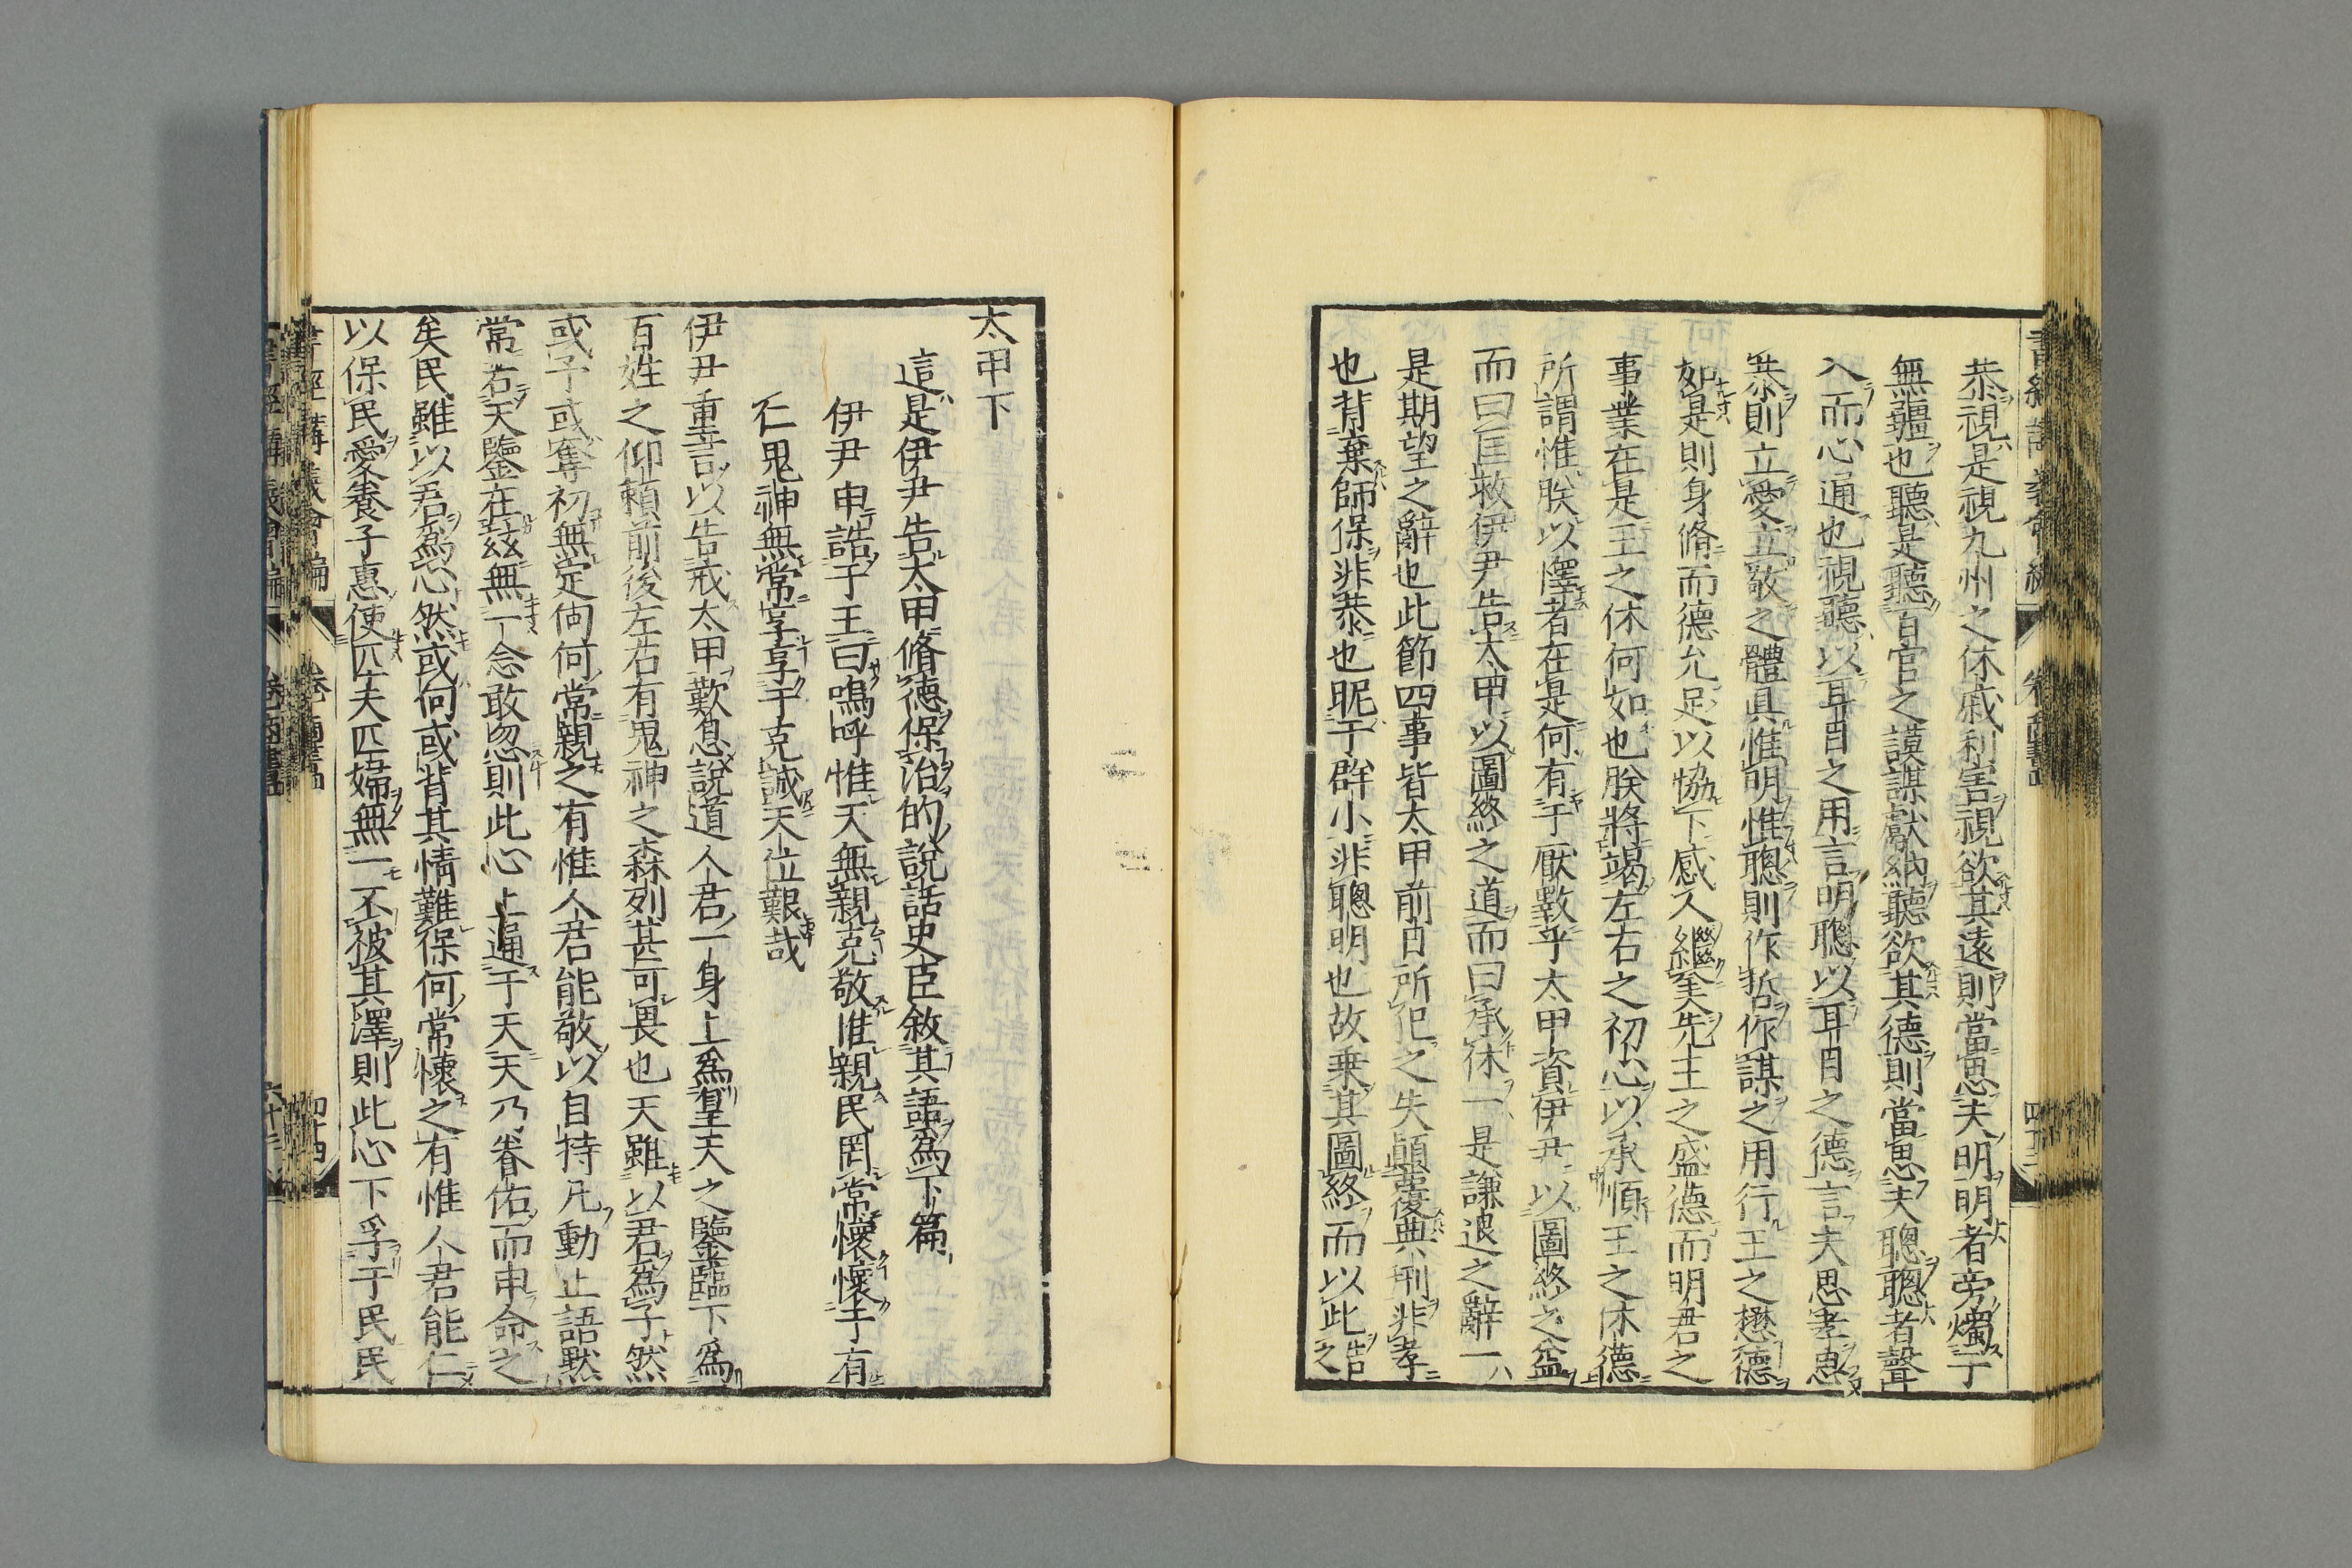 恭視是視九州之休戚利害視欲其遠則當思夫明明者旁燭于
無疆也聽是聽百官之謨謀獻納聽欲其德則當思夫聰聰者聲
入而心通也視聽以耳目之用言明聰以耳目之德言夫思孝思
恭則立愛立敬之體具惟明惟聰則作哲作謀之用行王之懋德
如是則身脩而德允足以恊下感人繼美先王之盛德而明君之
事業在是王之休何如也朕將竭左右之初心以承順王之休德
所謂惟朕以懌者在是何有于厭斁乎太甲資伊尹以圖終之益
而曰匡救伊尹告太甲以圖終之道而曰承休一是謙退之辭一
是期望之辭也此節四事皆太甲前日所犯之失顛覆典刑非孝
也背棄師保非恭也昵于群小非聰明也故乗其圖終而以此告之
太甲下
這是伊尹告太甲脩德保治的說話史臣敘其語爲下篇
伊尹申誥于王曰嗚呼惟天無親克敬惟親民罔常懷懷于有
仁鬼神無常享享于克誠天位艱哉
伊尹重言以告戒太甲歎息說道人君一身上爲皇天之鑒臨下爲
百姓之仰賴前後左右有鬼神之森列甚可畏也天雖以君爲子然
或予或奪初無定向何常親之有惟人君能敬以自持凡動止語默
常若天鑒在玆無一念敢忽則此心上逼于天天乃眷佑而申命之
矣民雖以君爲心然或向或背其情難保何常懷之有惟人君能仁
以保民愛養子惠使匹夫匹婦無一不被其澤則此心下孚于民民
書經講義會編
卷 商書
四十四